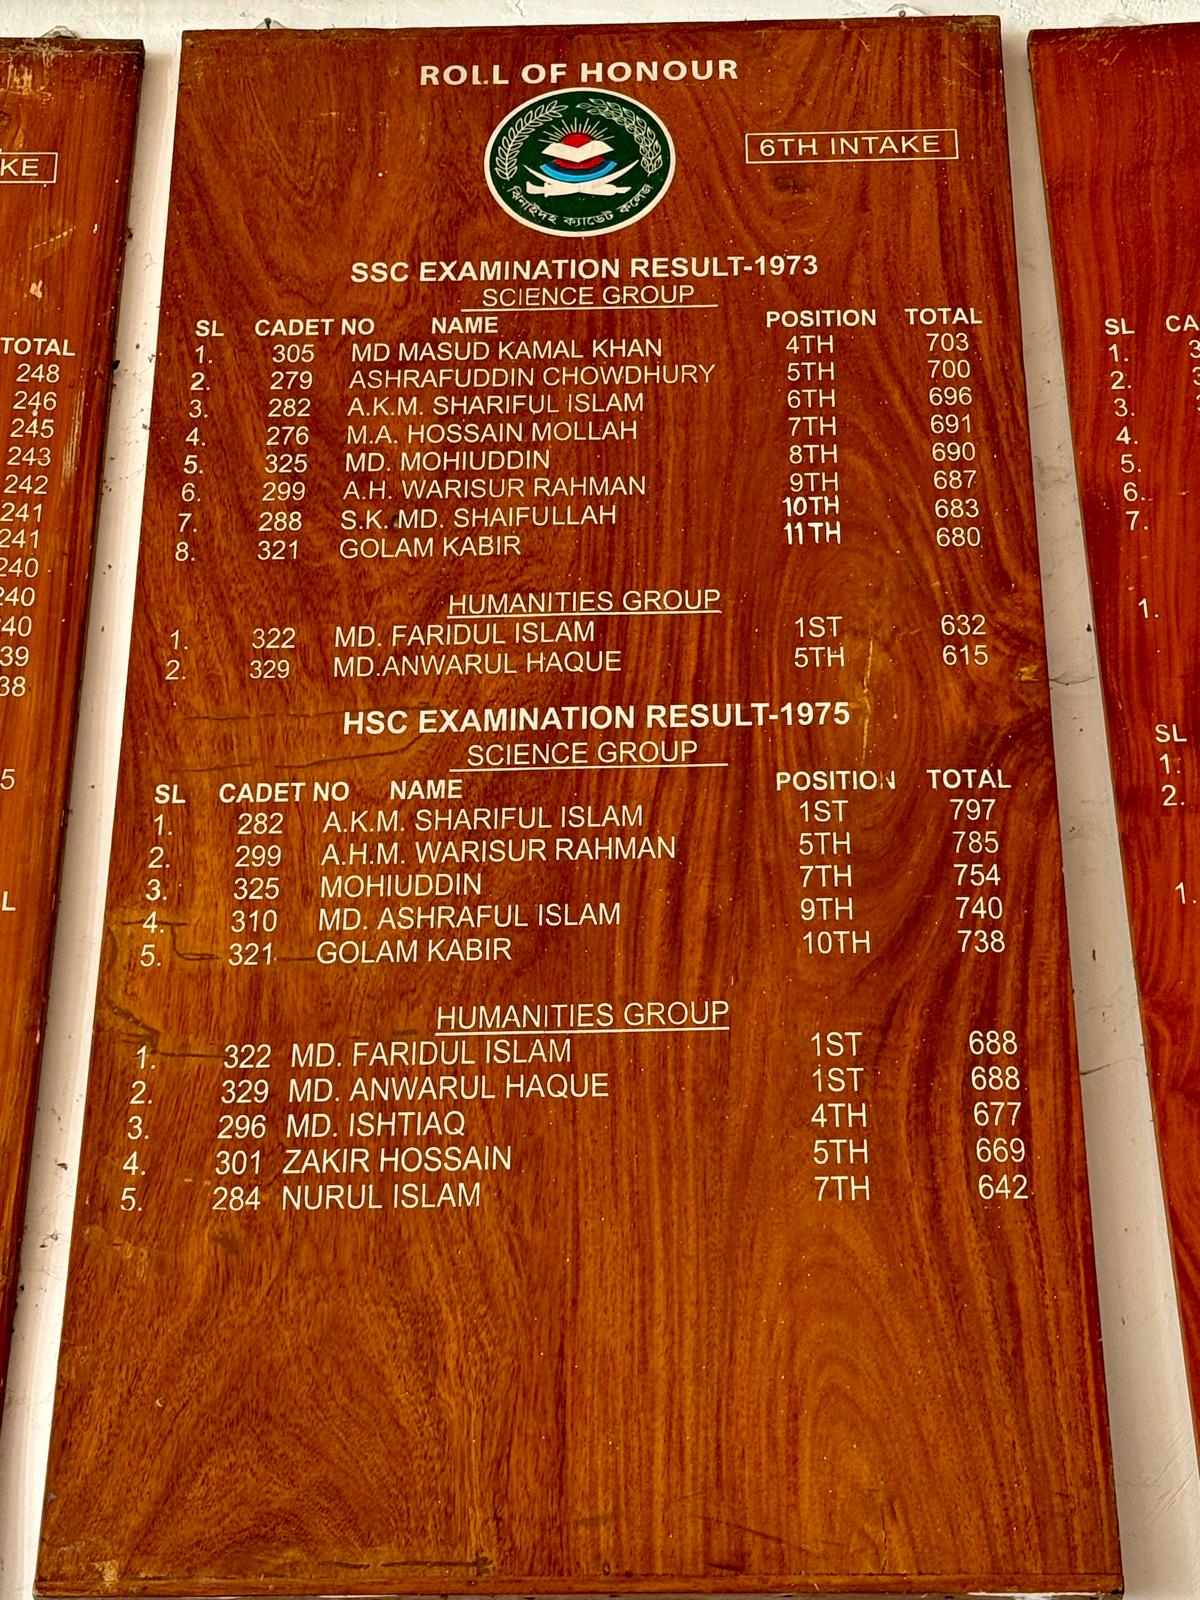 ROLL OF HONOUR
ঝিনাইদহ ক্যাডেট কলেজ
6TH INTAKE
SSC EXAMINATION RESULT-1973
SCIENCE GROUP
SL CADET NO NAME POSITION TOTAL
1. 305 MD MASUD KAMAL KHAN 4TH 703
2. 279 ASHRAFUDDIN CHOWDHURY 5TH 700
3. 282 A.K.M. SHARIFUL ISLAM 6TH 696
4. 276 M.A. HOSSAIN MOLLAH 7TH 691
5. 325 MD. MOHIUDDIN 8TH 690
6. 299 A.H. WARISUR RAHMAN 9TH 687
7. 288 S.K. MD. SHAIFULLAH 10TH 683
8. 321 GOLAM KABIR 11TH 680
HUMANITIES GROUP
1. 322 MD. FARIDUL ISLAM 1ST 632
2. 329 MD.ANWARUL HAQUE 5TH 615
HSC EXAMINATION RESULT-1975
SCIENCE GROUP
SL CADET NO NAME POSITION TOTAL
1. 282 A.K.M. SHARIFUL ISLAM 1ST 797
2. 299 A.H.M. WARISUR RAHMAN 5TH 785
3. 325 MOHIUDDIN 7TH 754
4. 310 MD. ASHRAFUL ISLAM 9TH 740
5. 321 GOLAM KABIR 10TH 738
HUMANITIES GROUP
1. 322 MD. FARIDUL ISLAM 1ST 688
2. 329 MD. ANWARUL HAQUE 1ST 688
3. 296 MD. ISHTIAQ 4TH 677
4. 301 ZAKIR HOSSAIN 5TH 669
5. 284 NURUL ISLAM 7TH 642
TOTAL
248
246
245
243
242
241
241
240
SL
1.
2.
3.
4.
5.
6.
7.
1.
SL
1.
2.
1.